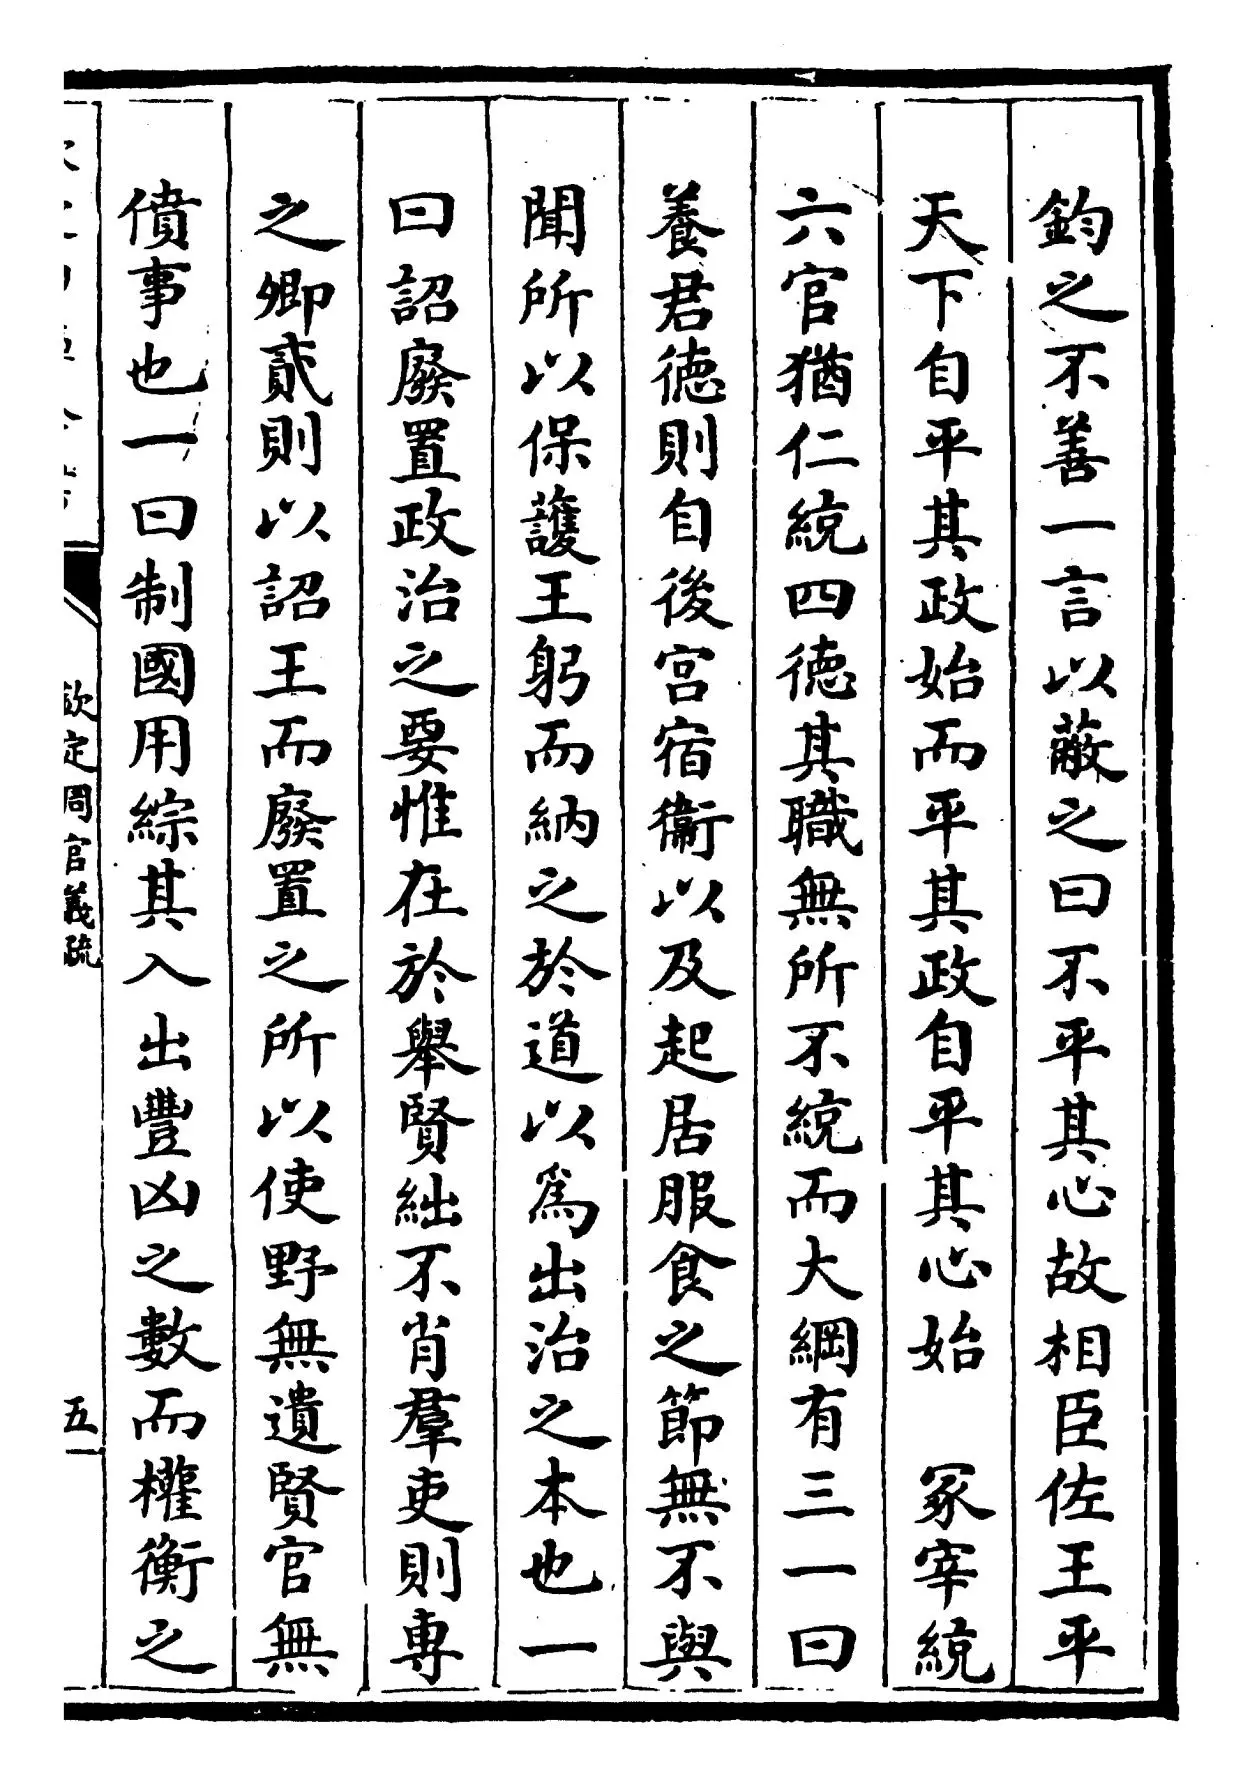 鈞之不善一言以蔽之曰不平其心故相臣佐王平
天下自平其政始而平其政自平其心始　冢宰統
六官猶仁統四德其職無所不統而大綱有三一曰
養君德則自後宮宿衞以及起居服食之節無不與
聞所以保護王躬而納之於道以為出治之本也一
曰詔廢置政治之要惟在於舉賢絀不肖羣吏則專
之卿貳則以詔王而廢置之所以使野無遺賢官無
僨事也一曰制國用綜其入出豐凶之數而權衡之
欽定周官義疏
五